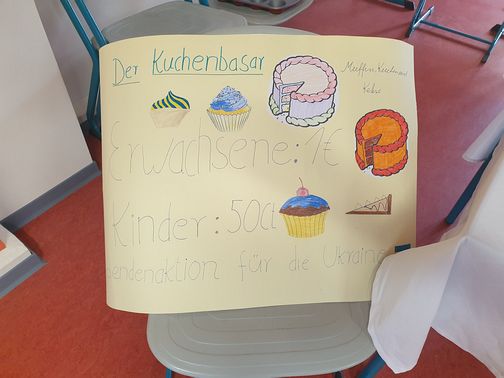 Der Kuchenbasar
Muffin, Kuchen und
Kekse
Erwachsene: 1€
Kinder: 50ct
endenaktion für die Ukraine